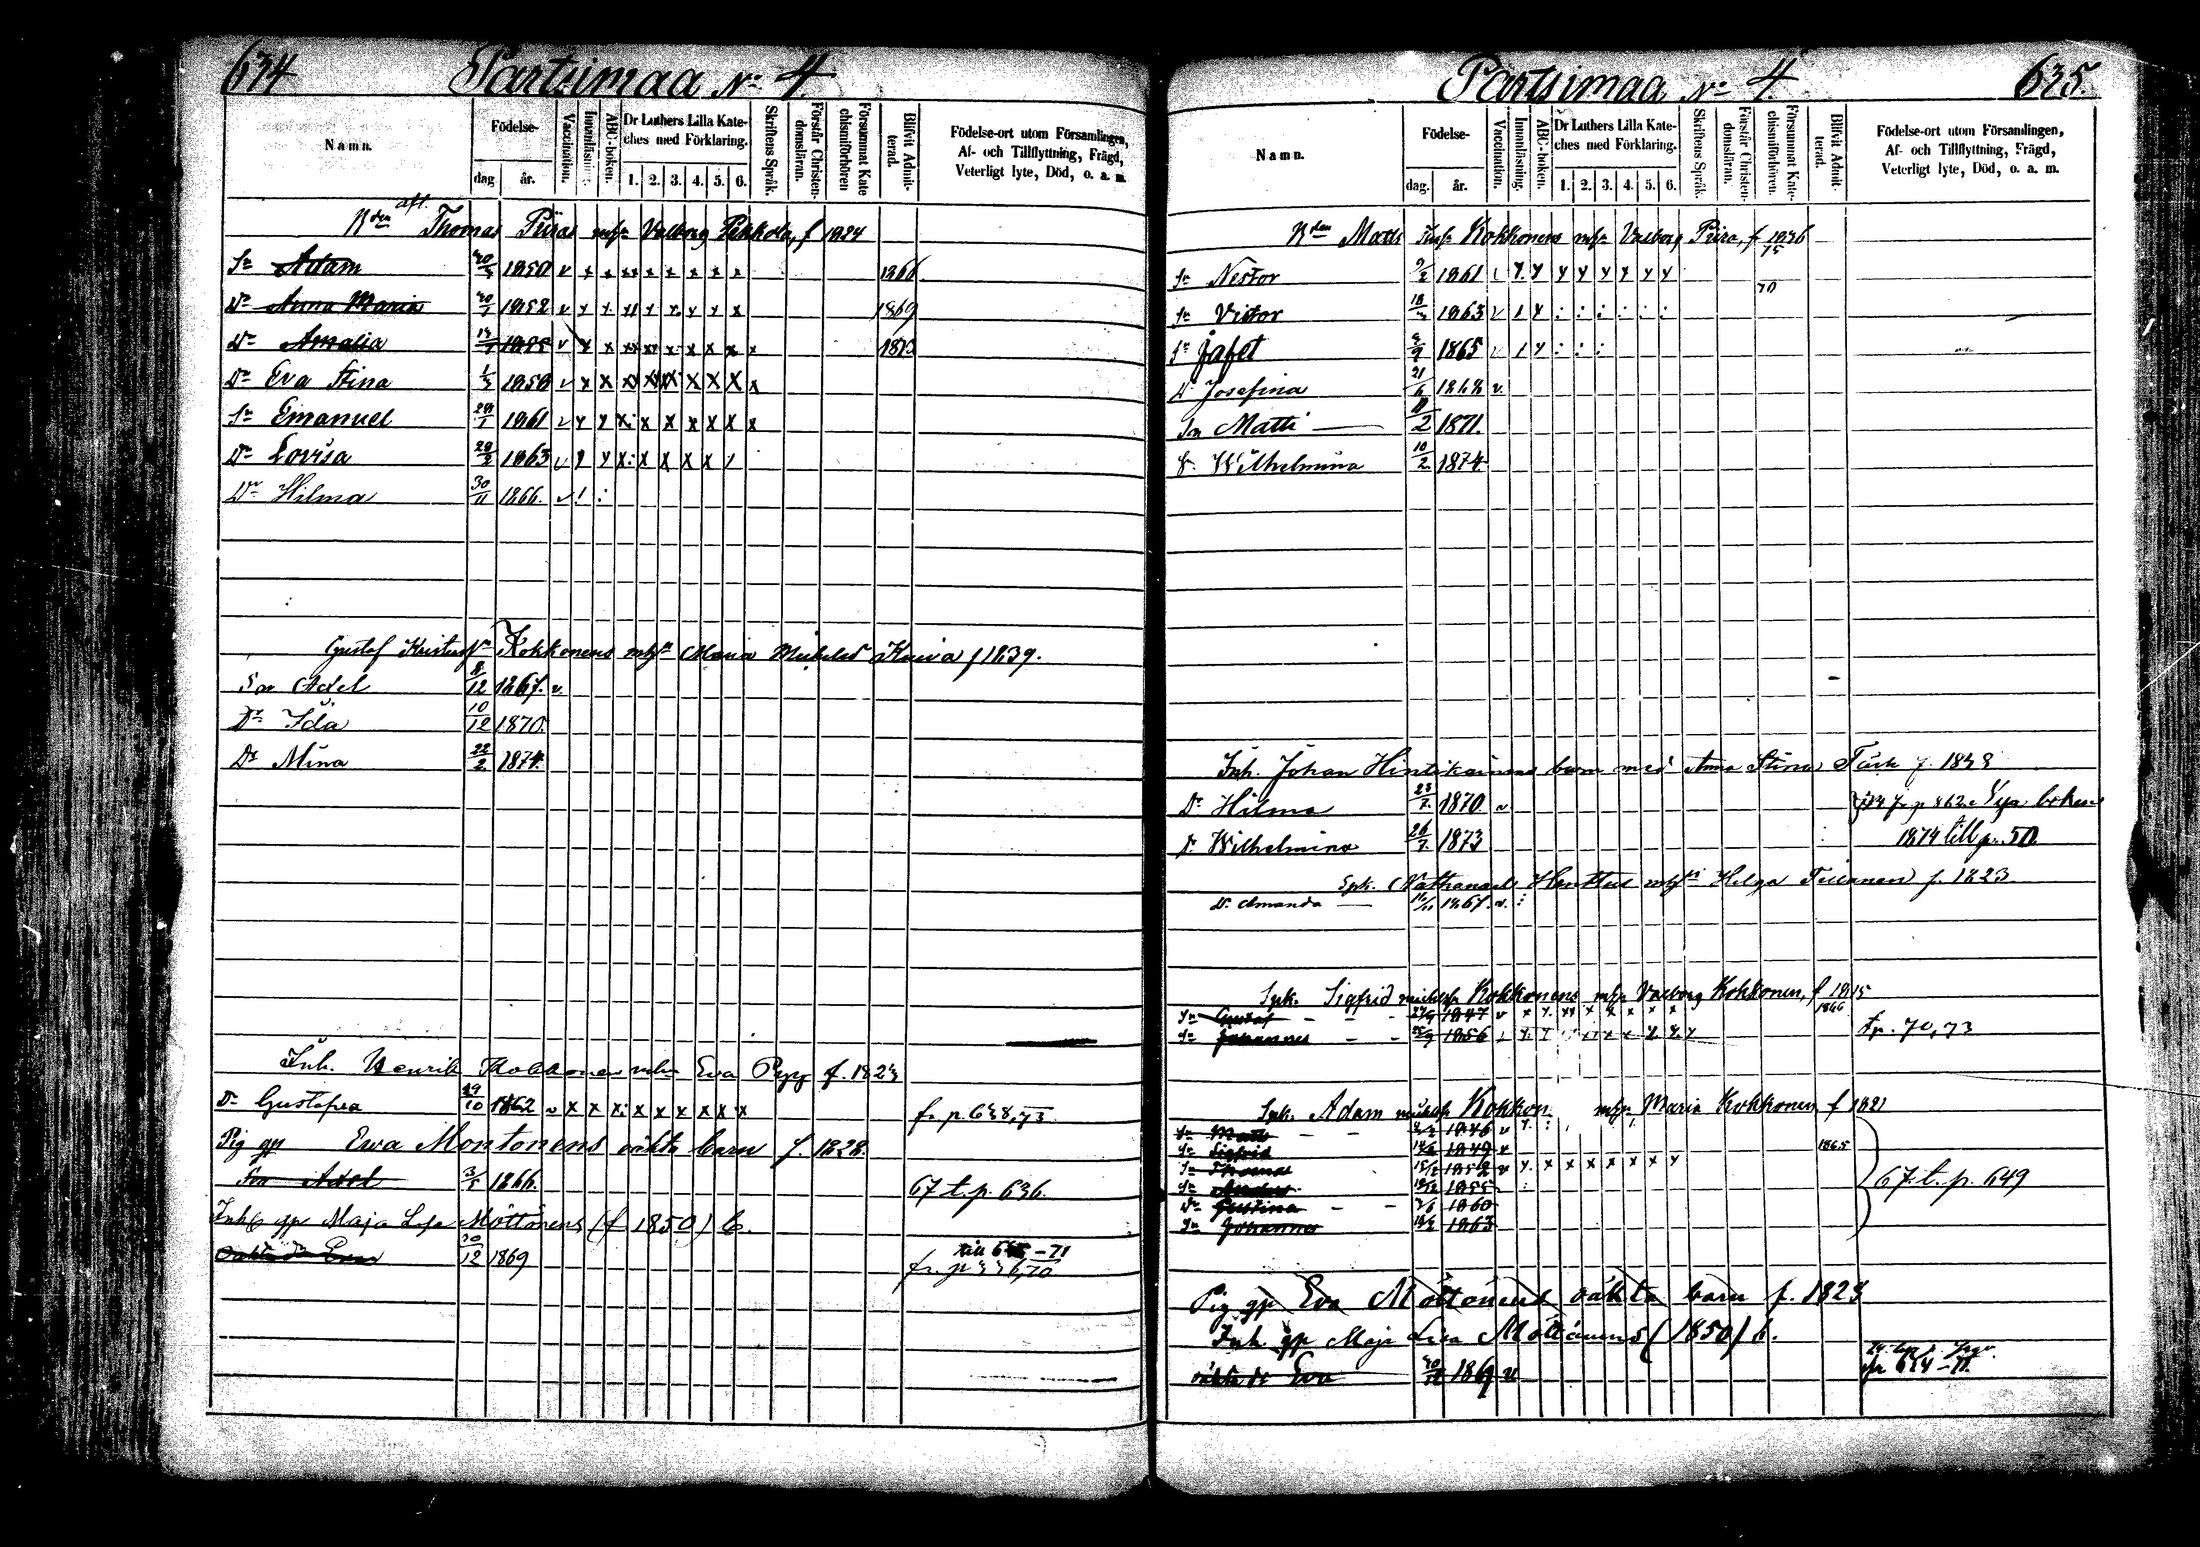 634 Partsimaa No 4.
Namn.
Födelse-
dag
år.
Vaccination.
Innanläsning.
ABC-boken.
Dr Luthers Lilla Kateches med Förklaring.
1. 2. 3. 4. 5. 6.
Skriftens Språk.
Förstår Christendomsläran.
Försummat Katechismiförhören
Blifvit Admitterad.
Födelse-ort utom Församlingen,
Af- och Tillflyttning, Frägd,
Veterligt lyte, Död, o. a. m.
afl.
Bden Thomas Piiras mhu Valborg Pekkola, f 1824
Sn Adam 1850 v x x xx x x x x x 1866
Dr Anna Maria 1852 v 1869
Dr Amalia 1873
Dr Eva Stina 1/3 1858
Sn Emanuel 1861
Dr Lovisa 1863
Dr Hilma 30/11 1866.
Gustaf Kokkonens mhu Maria f 1839.
Son Axel 12 1867. v
Dr Ida 10/12 1870.
Dr Mina 22/2 1874.
Inh. Henrik Kokkonens mhu Eva f. 1823
Dr Gustafva 29/10 1862 v x x x x x x x x x fr. p. 638, 73
Pig gp Ewa Montonens oäkta barn f. 1828.
Son Axel 3/5 1866. 67 t. p. 636.
Inh gp Maja Lisa Möttönens (f 1850) b.
oäkta dr Eva 30/12 1869 till -71
Partsimaa No 4. 635.
Namn.
Födelse-
dag.
år.
Vaccination.
Innanläsning.
ABC-boken.
Dr Luthers Lilla Kateches med Förklaring.
1. 2. 3. 4. 5. 6.
Skriftens Språk.
Förstår Christendomsläran.
Försummat Katechismiförhören.
Blifvit Admitterad.
Födelse-ort utom Församlingen,
Af- och Tillflyttning, Frägd,
Veterligt lyte, Död, o. a. m.
Bden Matts Kokkonens mhu Valborg Piira, f 1836
75
Sn Nestor 9/2 1861
70
Sn Victor 18 1863
Sn Jafet 9 1865
Dr Josefina 21/6 1868 v.
Son Matti 2 1871.
Dr Wilhelmina 10/2 1874
Inh. Johan Hintikainens barn med Anna Stina f. 1838
Dr Hilma 23/7. 1870 v boken
Dr Wilhelmina 26/7. 1873 1874 till p. 50.
Spk. Nathanael Henttus mhu Helga Teilanen f. 1823
Dr Amanda 1867. v.
Spk. Sigfrid Kokkonens mhu Valborg Kokkonen, f 1815
Sn Gustaf 1847 v 1866
Sn Johannes 1856 t p. 70, 73
Spk. Adam Kokkon mhu Maria Kokkonen f 1821
Sn Matts 1846 v
Sn Sigfrid 1849 v 1865
Sn Thomas 1852 v 67 t. p. 649
1855
Dr Gustina 1860
Sn Johannes 1863
Pig gp Eva Möttönens oäkta barn f. 1828
Inh. gp Maja Lisa Möttönens (1850) b.
oäkta dr Eva 1869 v